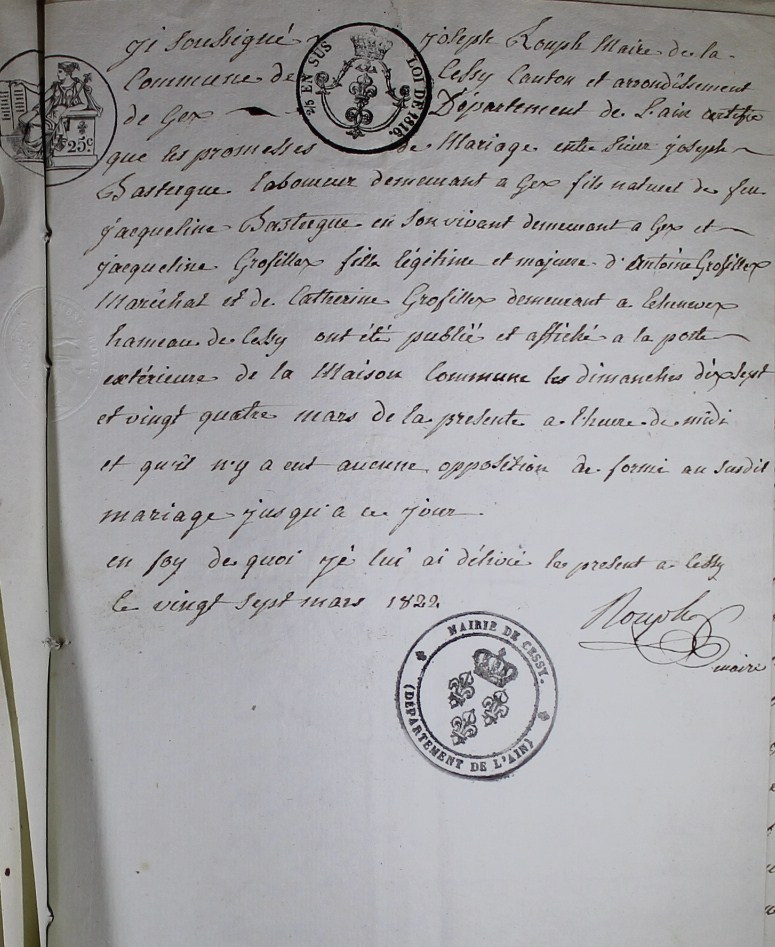 25c
2/5 EN SUS LOI DE 1816.
Ji Soussigné joseph Rouph Maire de la
Commune de Cessy Canton et arrondissement
de Gex Département de l'ain certifie
que les promesses de Mariage entre Sieur joseph
Bastergue laboureur demeurant a Gex fils naturel de feu
jacqueline Bastergue en son vivant demeurant a Gex et
jacqueline Grosillex fille légitime et majeure d'Antoine Grosillex
Maréchal et de Catherine Grosillex demeurant a Echenevex
hameau de Cessy ont été publié et affiché a la porte
extérieure de la Maison Commune les dimanches dix Sept
et vingt quatre mars de la presente a l'heure de midi
et qu'il n'y a eut aucune opposition de formé au susdit
mariage jusqu'a ce jour
en foy de quoi jé lui ai délivré le present a Cessy
le vingt Sept mars 1822
Rouph
maire
MAIRIE DE CESSY.
(DÉPARTEMENT DE L'AIN)